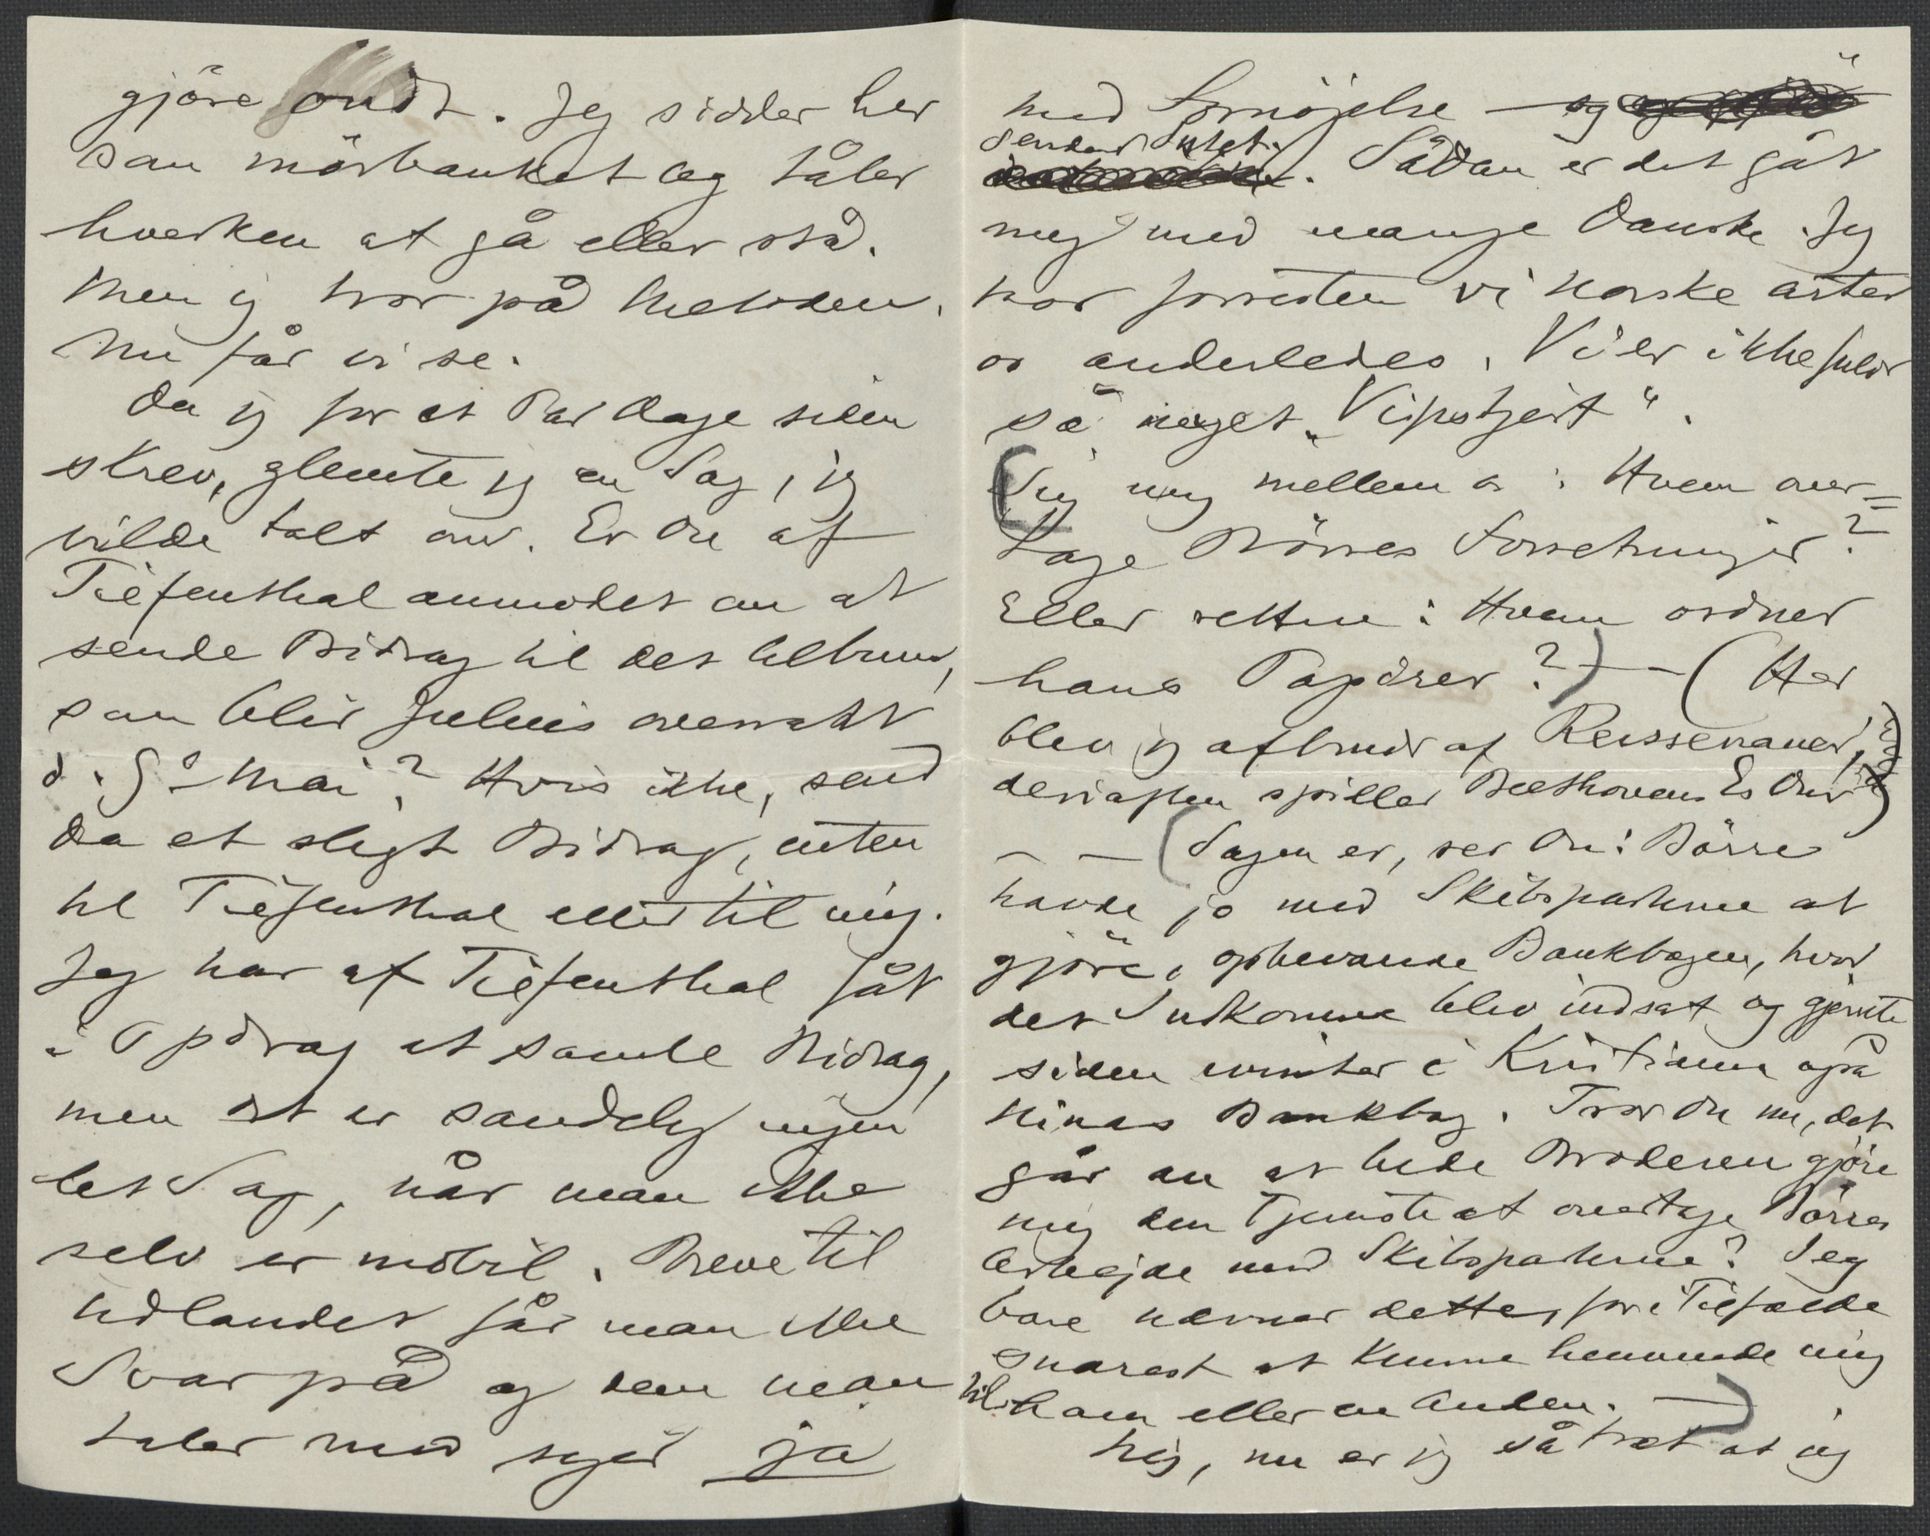 gjöre ondt. Jeg sidder her
som mörbanket og tåler
hverken at gå eller stå.
Men jeg tror på Metoden.
Nu får vi se.
Da jeg for et Par Dage siden
skrev, glemte jeg en Sag, jeg
vilde talt om. Er Du af
Tiefenthal anmodet om at
sende Bidrag til det Album,
som blir Julius overrakt
d. 9de Mai? Hvis ikke, send
da et sligt Bidrag, enten
til Tiefenthal eller til mig.
Jeg har af Tiefenthal fåt
i Opdrag at samle Bidrag,
men det er sandelig ingen
let Sag, når man ikke
selv er mobil. Breve til
Udlandet får man ikke
Svar på og dem man
taler med siger ja
med Fornöjelse – og
sender Intet. Sådan er det gåt
mig med mange Danske. Jeg
tror forresten vi Norske arter
os anderledes. Vi er ikke fuldt
så meget „Vipstjert".
(Sig mig mellem os: Hvem over=
tage Börres Forretninger?
Eller rettere: Hvem ordner
hans Papirer?) – – (Her
blev jeg afbrudt af Reissenauer,
der iaften spiller Beethovens Es Dur)
– – (Sagen er, ser Du: Börre
havde jo med Skibsparterne at
gjöre, opbevarede Bankbogen, hvor
det Indkomne blev indsat og gjemte
siden ivinter i Kristiania også
Ninas Bankbog. Tror Du nu, det
går an at bede Broderen gjöre
mig den Tjeneste at overtage Börres
Arbejde med Skibsparterne? Jeg
bare nævner dette, for i Tilfælde
snarest at kunne henvende mig
til ham eller en Anden. –)
Nej, nu er jeg så træt at jeg